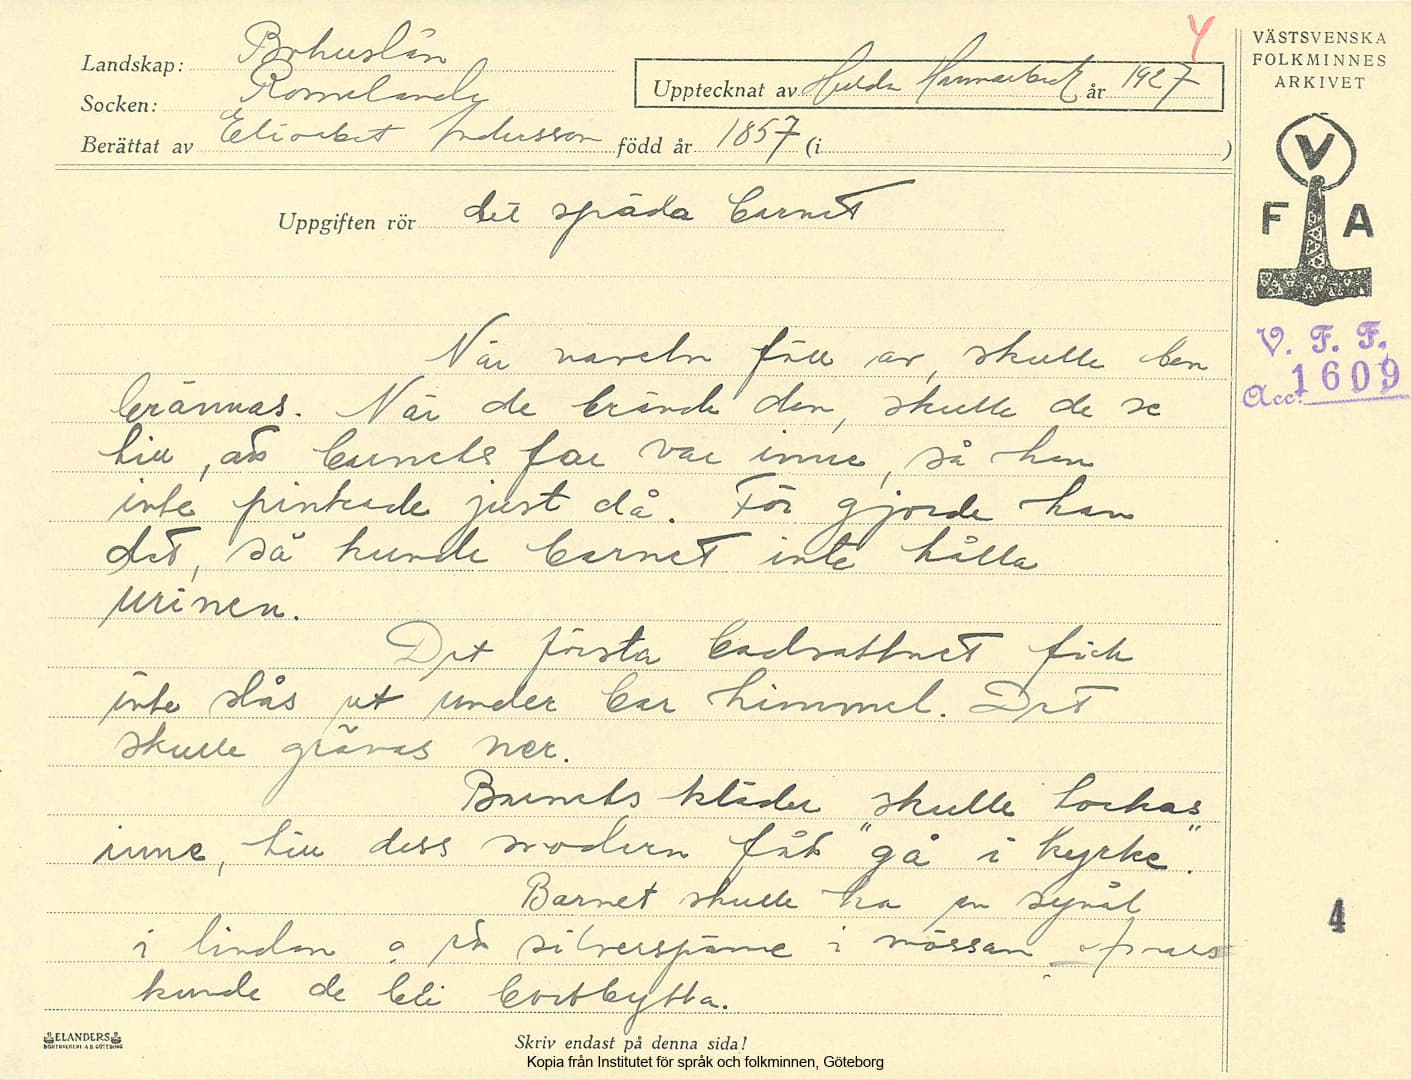 Landskap: Bohuslän
Socken: Romelanda
Berättat av Elisabet Andersson född år 1857 (i )
Upptecknat av Hulda Hammarbäck år 1927
Y
VÄSTSVENSKA
FOLKMINNES
ARKIVET
V
F A
V. F. F.
Acc. 1609
Uppgiften rör det späda barnet
När naveln föll av, skulle den
brännas. När de brände den, skulle de se
till, att barnets far var inne, så han
inte pinkade just då. För gjorde han
det, så kunde barnet inte hålla
urinen.
Det första badvattnet fick
inte slås ut under bar himmel. Det
skulle grävas ner.
Barnets kläder skulle torkas
inne, till dess modern fått "gå i kyrke".
Barnet skulle ha en synål
i lindan o en silverspänne i mössan. Annars
kunde de bli bortbytta.
4
ELANDERS
BOKTRYCKERI A.B. GÖTEBORG
Skriv endast på denna sida!
Kopia från Institutet för språk och folkminnen, Göteborg